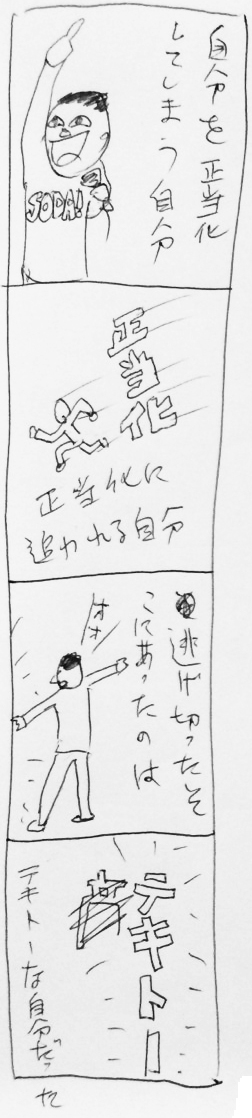 自分を正当化
してしまう自分
SODA!
正当化
正当化に
追われる自分
逃げ切ったそ
こにあったのは
オオ
テキトー
テキトーな自分だった